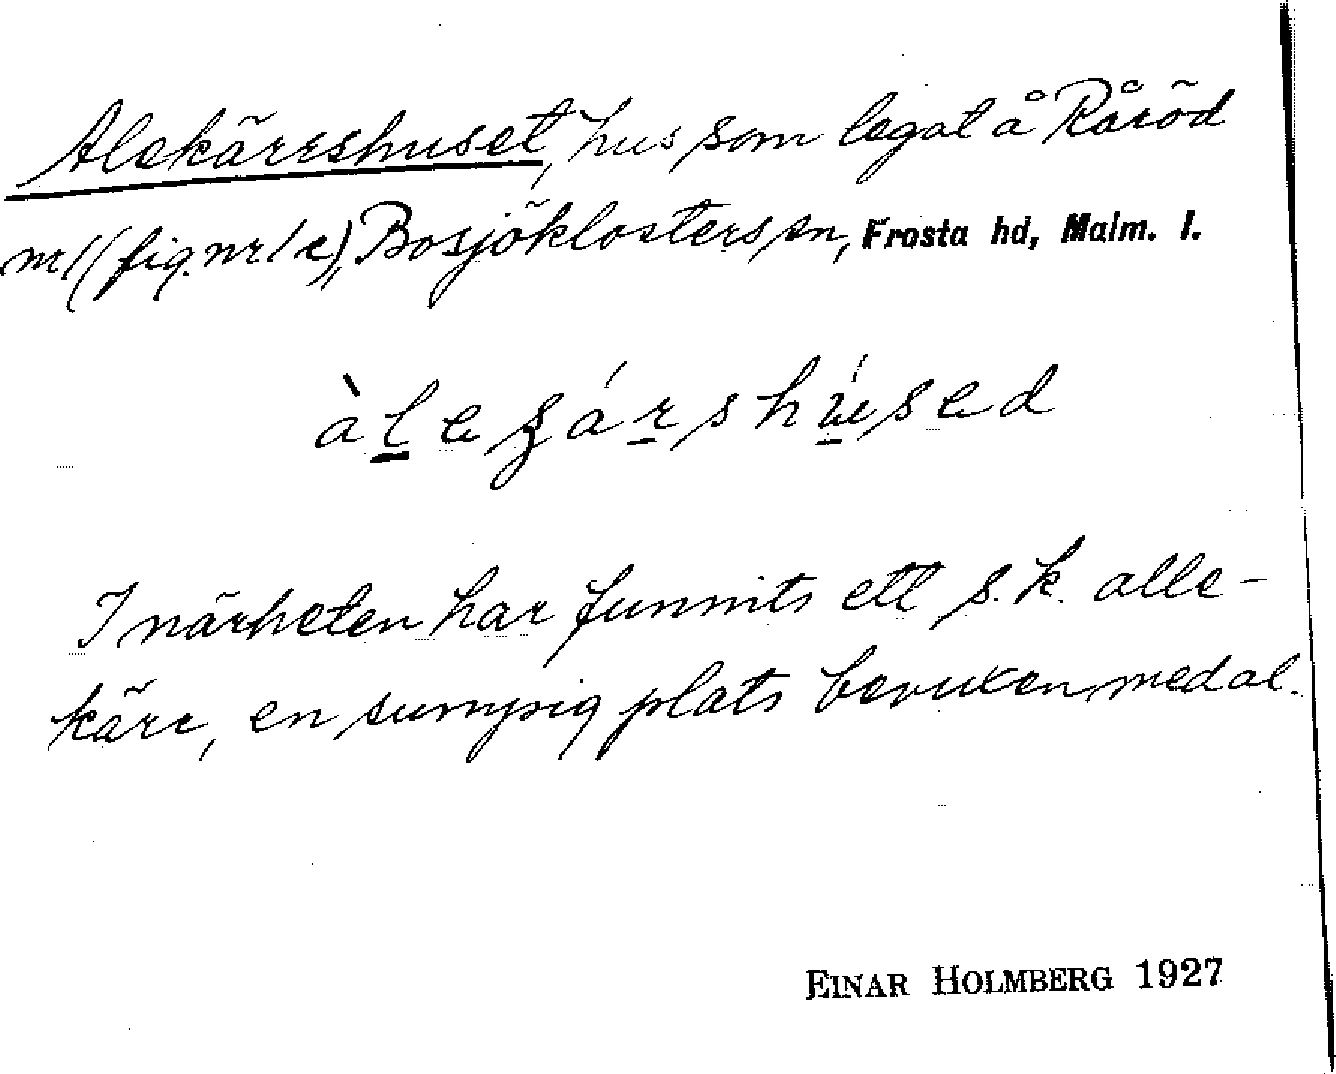 Alekärrshuset, hus som legat å Råröd
nr 1 (fig. nr 1 c), Bosjöklosters sn, Frosta hd, Malm. l.
I närheten har funnits ett s.k. alle-
kärr, en sumpig plats bevuxen med al.
EINAR HOLMBERG 1927